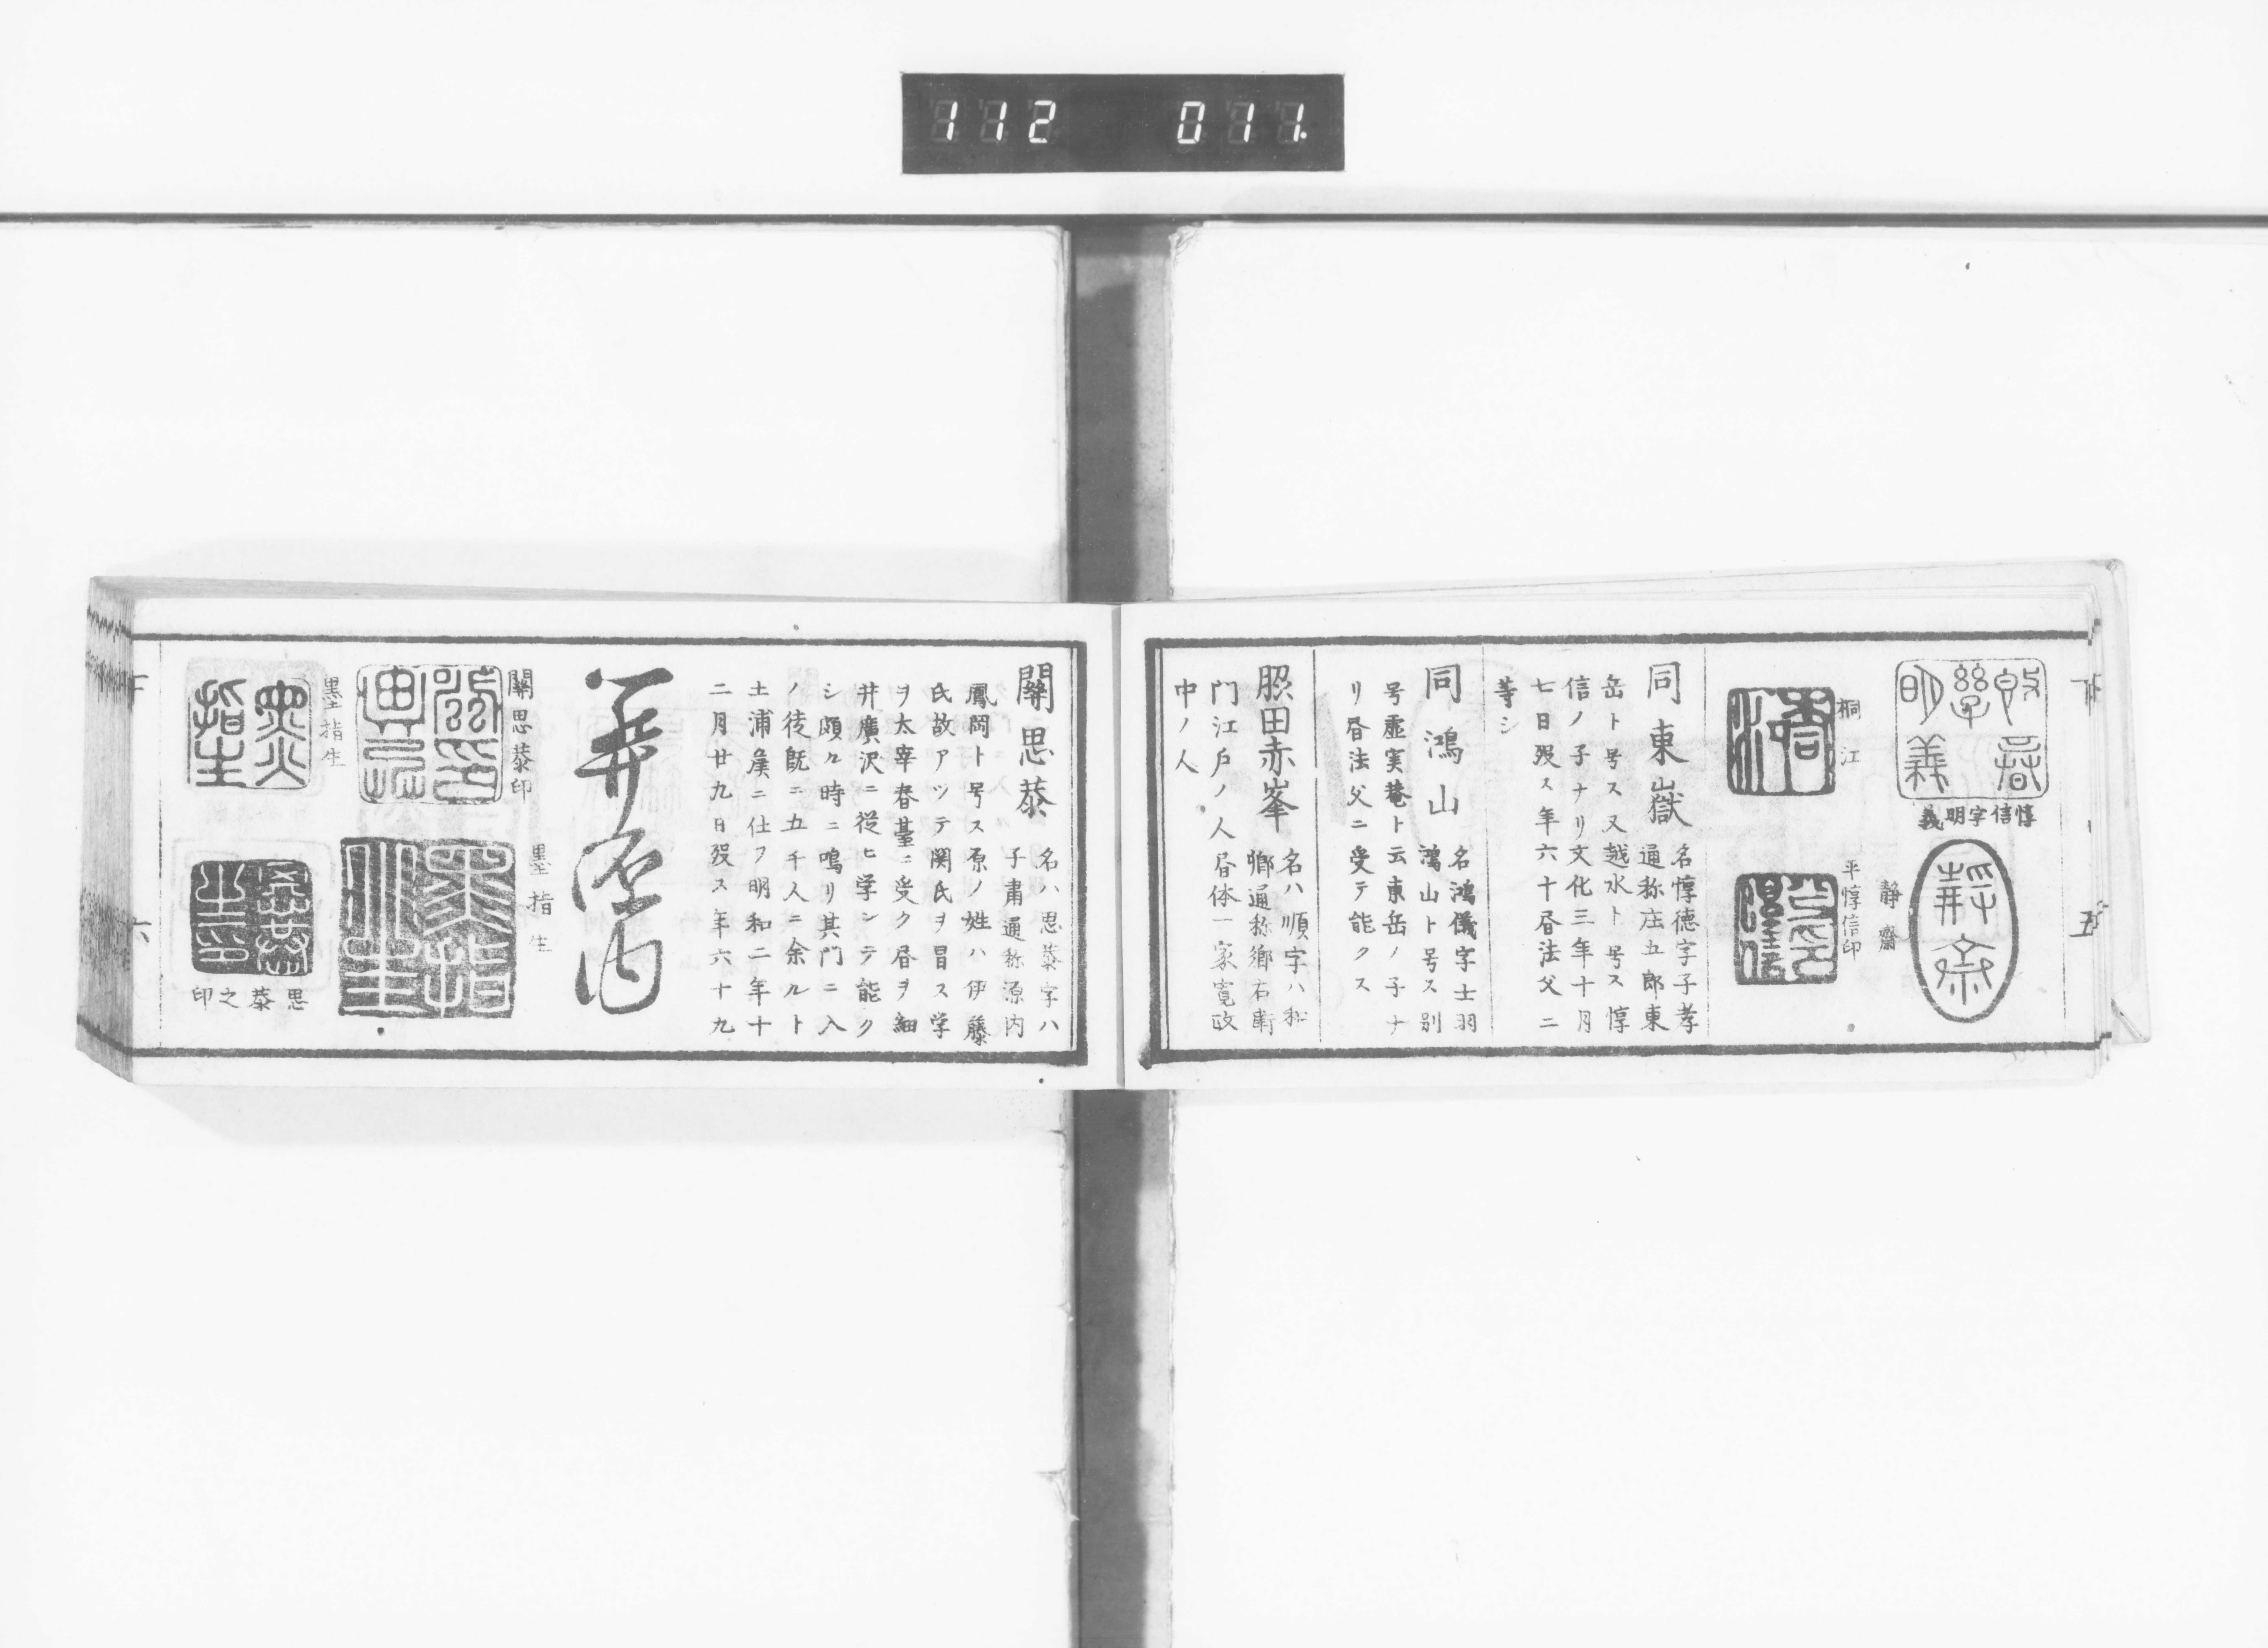 112 011.
惇信字明義
静齋
桐江
平惇信印
同東嶽 名惇德字子孝
通称庄五郎東
岳ト号ス又越水ト号ス惇
信ノ子ナリ文化三年十月
七日殁ス年六十昏法父ニ
等シ
同鴻山 名鴻儀字士羽
鴻山ト号ス別
号虚実菴ト云東岳ノ子ナ
リ昏法父ニ受テ能クス
照田赤峯 名ハ順字ハ和
郷通称郷右衛
門江戸ノ人昏体一家寛政
中ノ人
五
關思恭 名ハ思恭字ハ
子肅通称源内
鳳岡ト号ス原ノ姓ハ伊藤
氏故アツテ関氏ヲ冒ス学
ヲ太宰春䑓ニ受ク昏ヲ細
井廣沢ニ從ヒ学ンテ能ク
シ頗ル時ニ鳴リ其門ニ入
ノ徒既ニ五千人ニ余ルト
土浦矦ニ仕フ明和二年十
二月廿九日殁ス年六十九
關思恭印
墨指生
墨指生
思恭之印
六